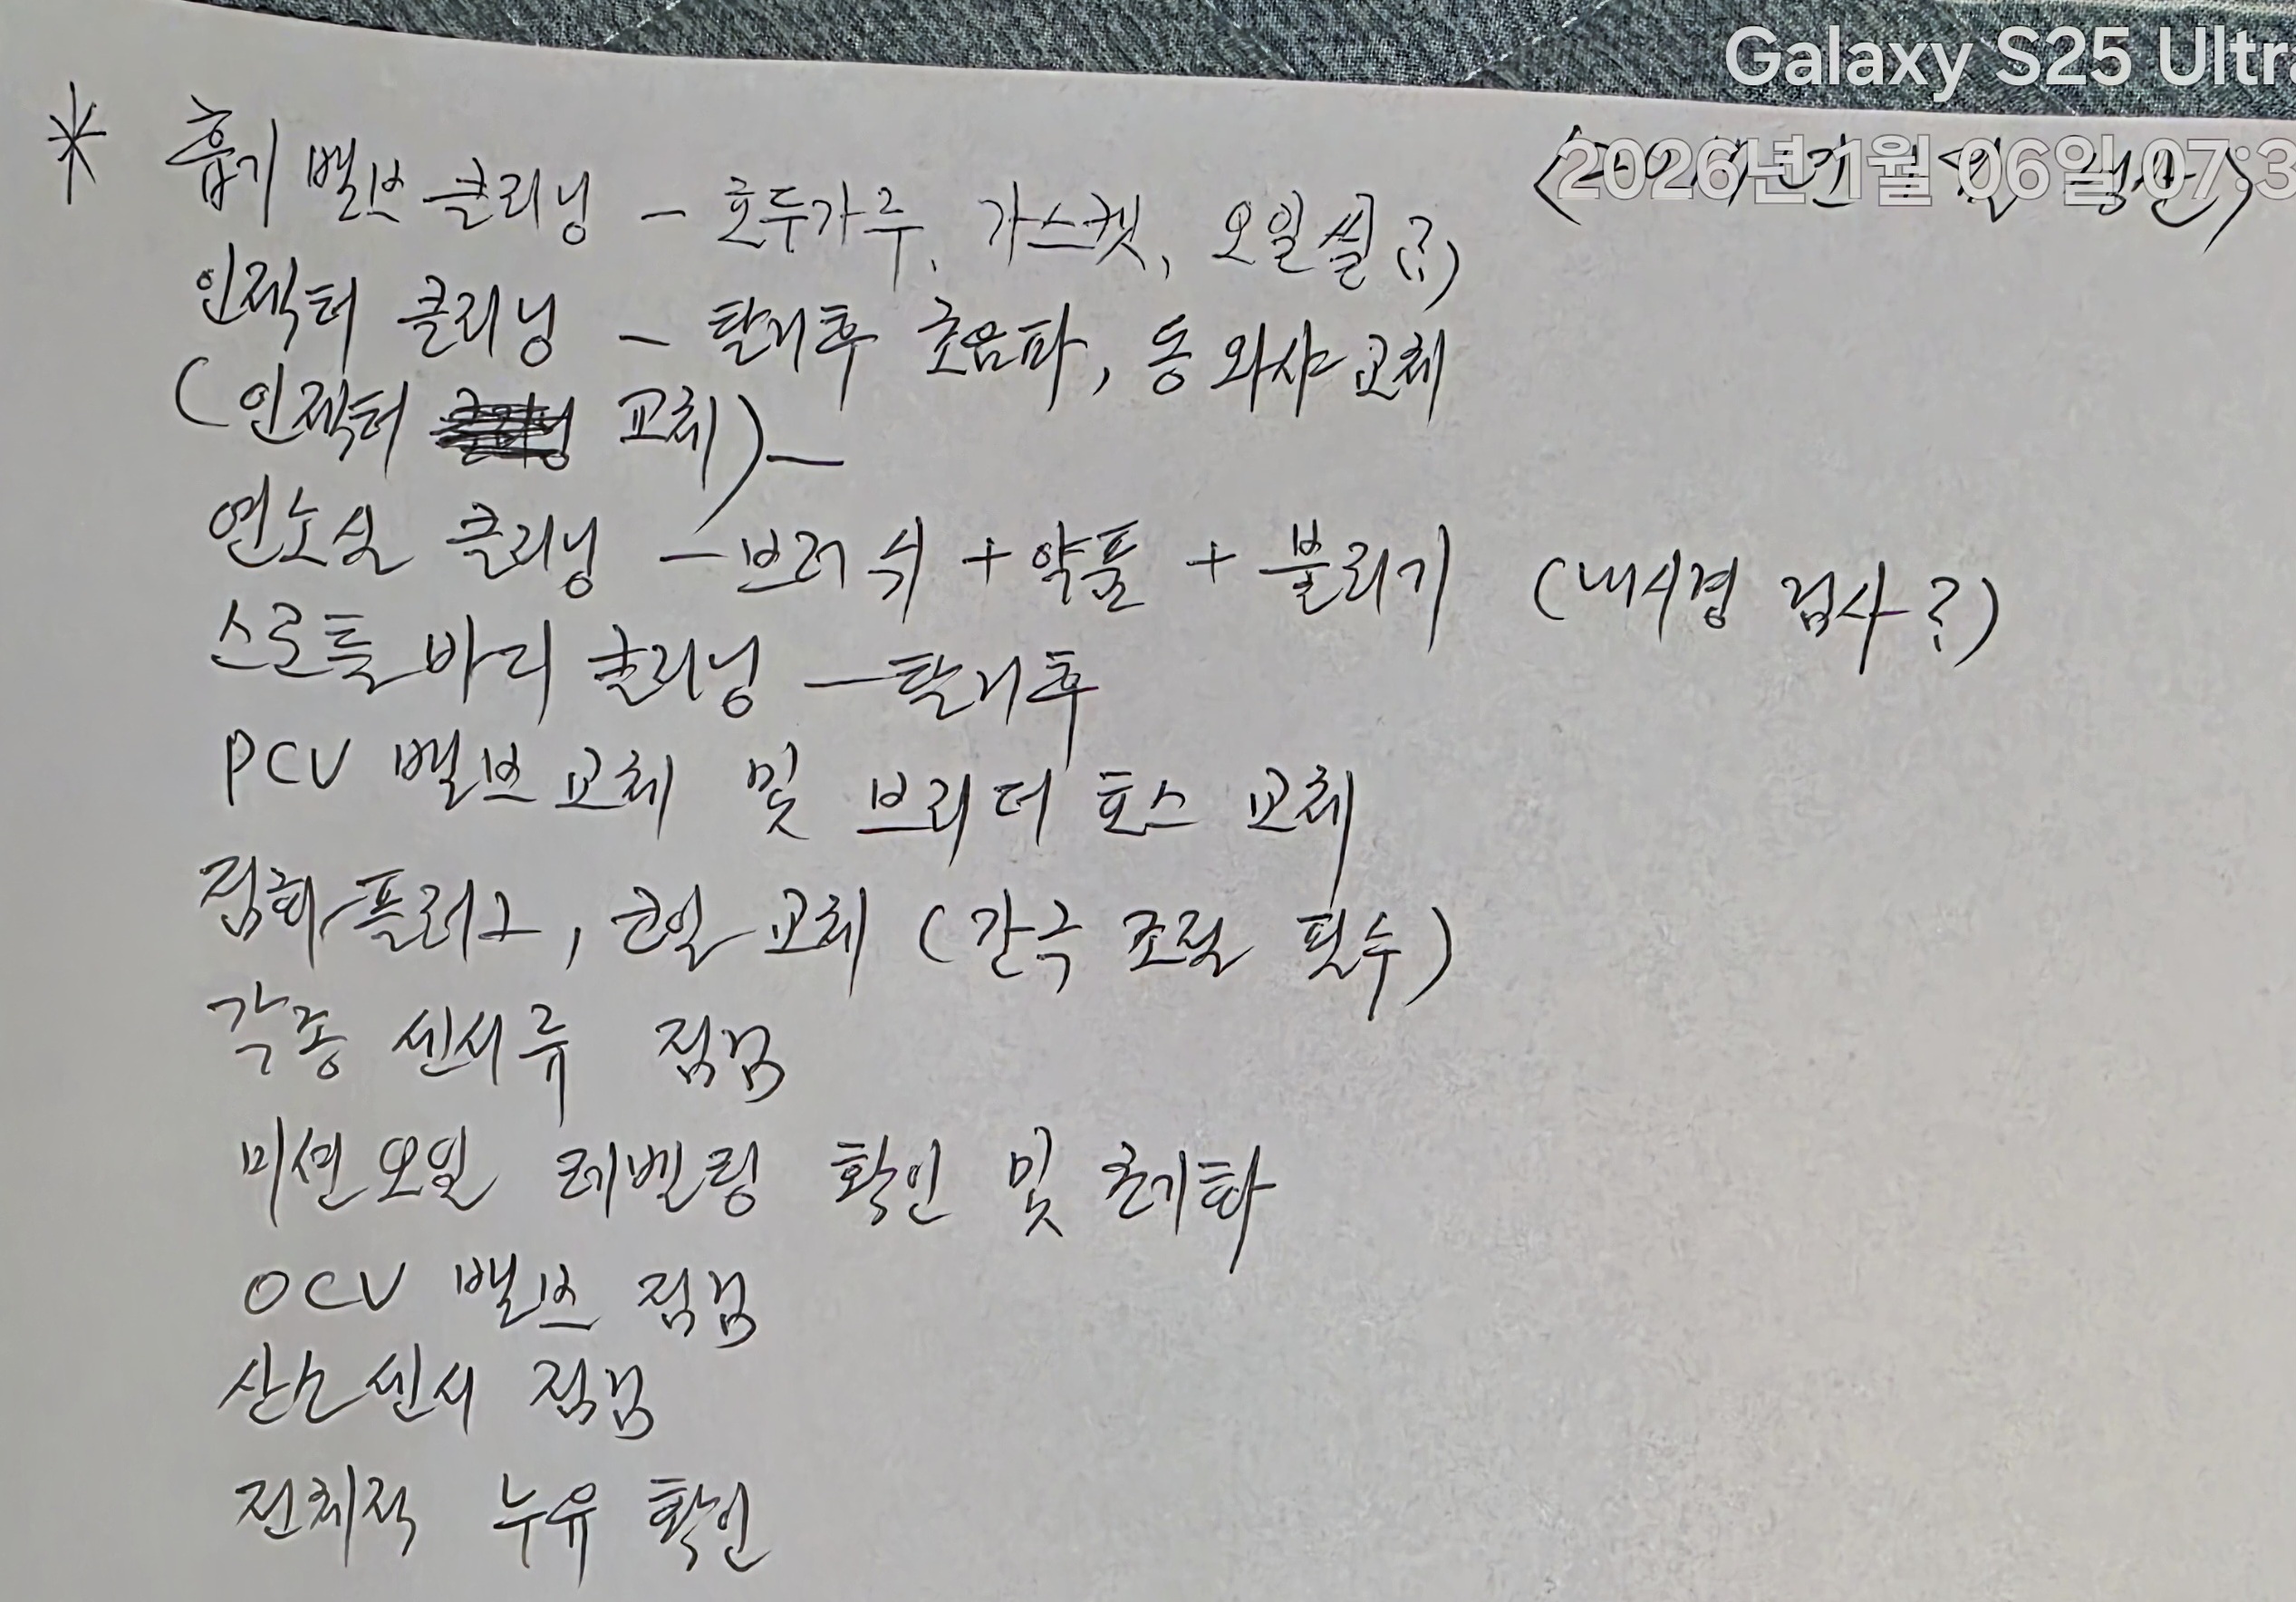 Galaxy S25 Ultra
2026년 1월 06일 07:3
* 흡기 밸브 클리닝 - 호두가루, 가스켓, 오일씰(?)
인젝터 클리닝 - 탈거후 초음파, 동 와샤 교체
(인젝터 교체) -
연소실 클리닝 - 브러쉬 + 약품 + 불리기 (내시경 검사?)
스로틀 바디 클리닝 - 탈거후
PCV 밸브 교체 및 브리더 호스 교체
점화플러그, 코일 교체 (간극 조절 필수)
각종 센서류 점검
미션오일 레벨링 확인 및 초기화
OCV 밸브 점검
산소센서 점검
전체적 누유 확인